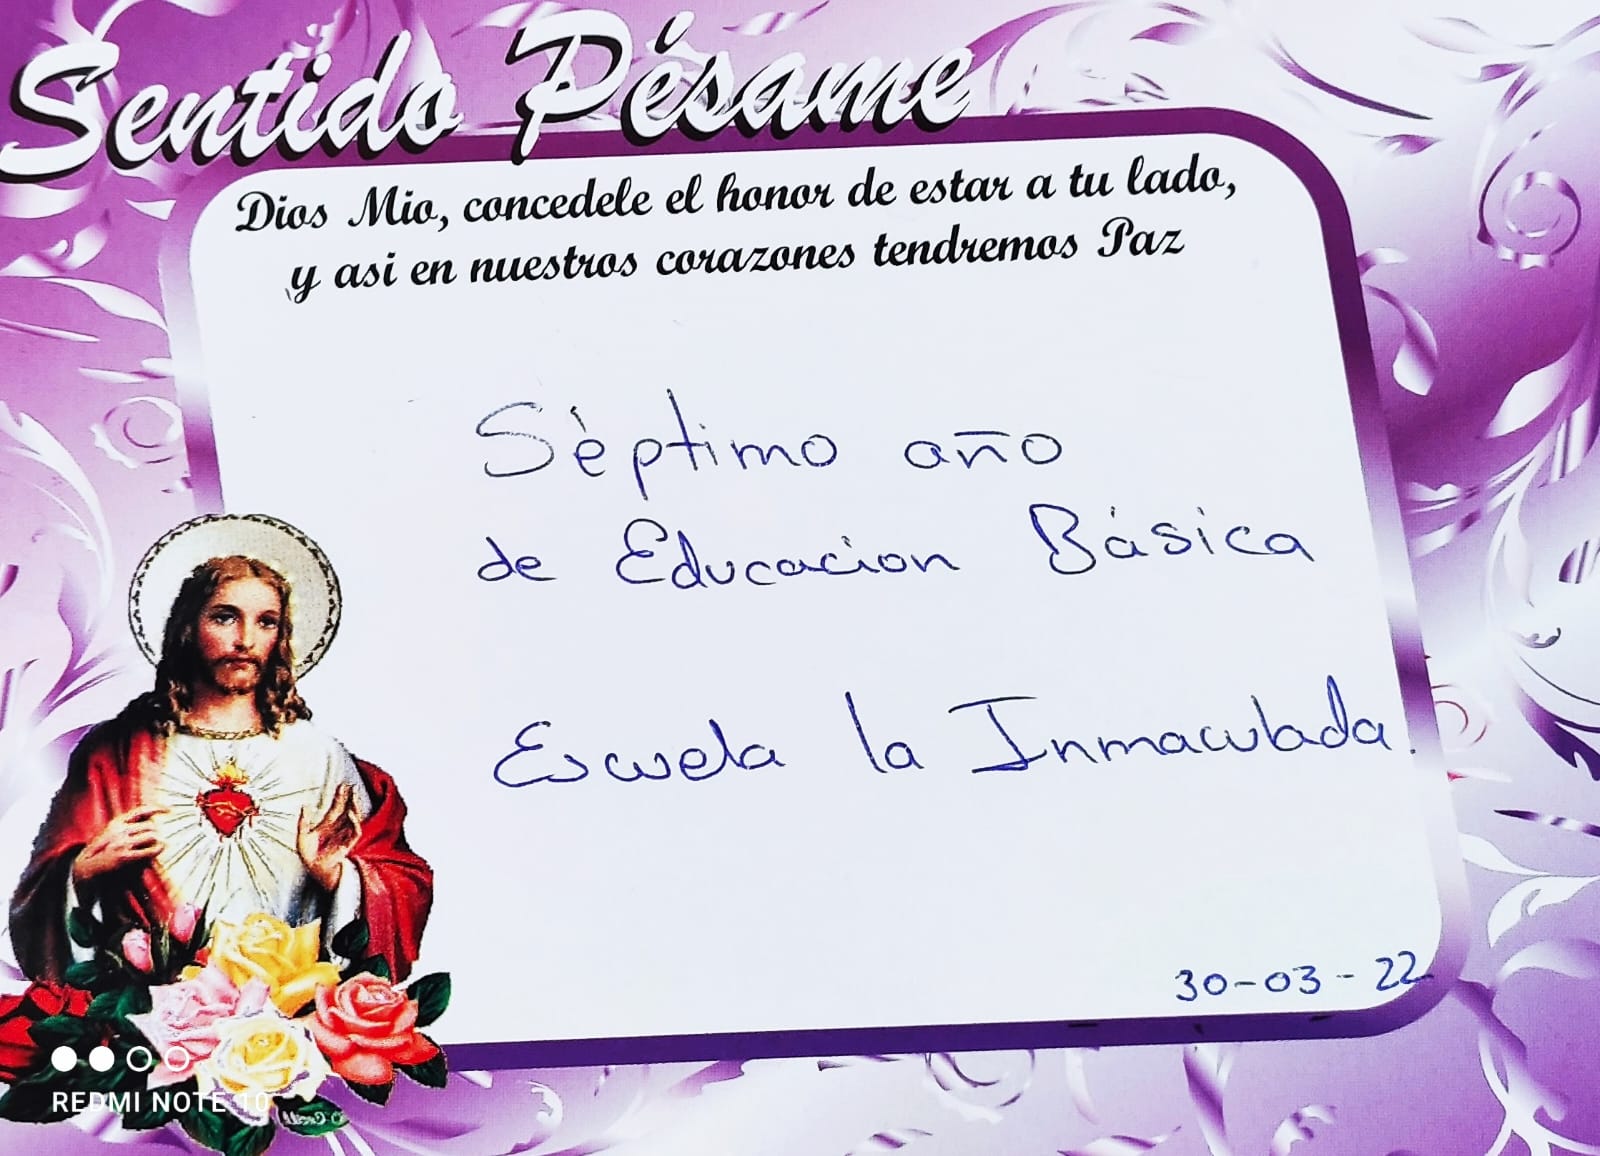 Sentido Pésame
Dios Mio, concedele el honor de estar a tu lado,
y asi en nuestros corazones tendremos Paz
Séptimo año
de Educacion Básica
Escuela la Inmaculada.
30-03-22
REDMI NOTE 10